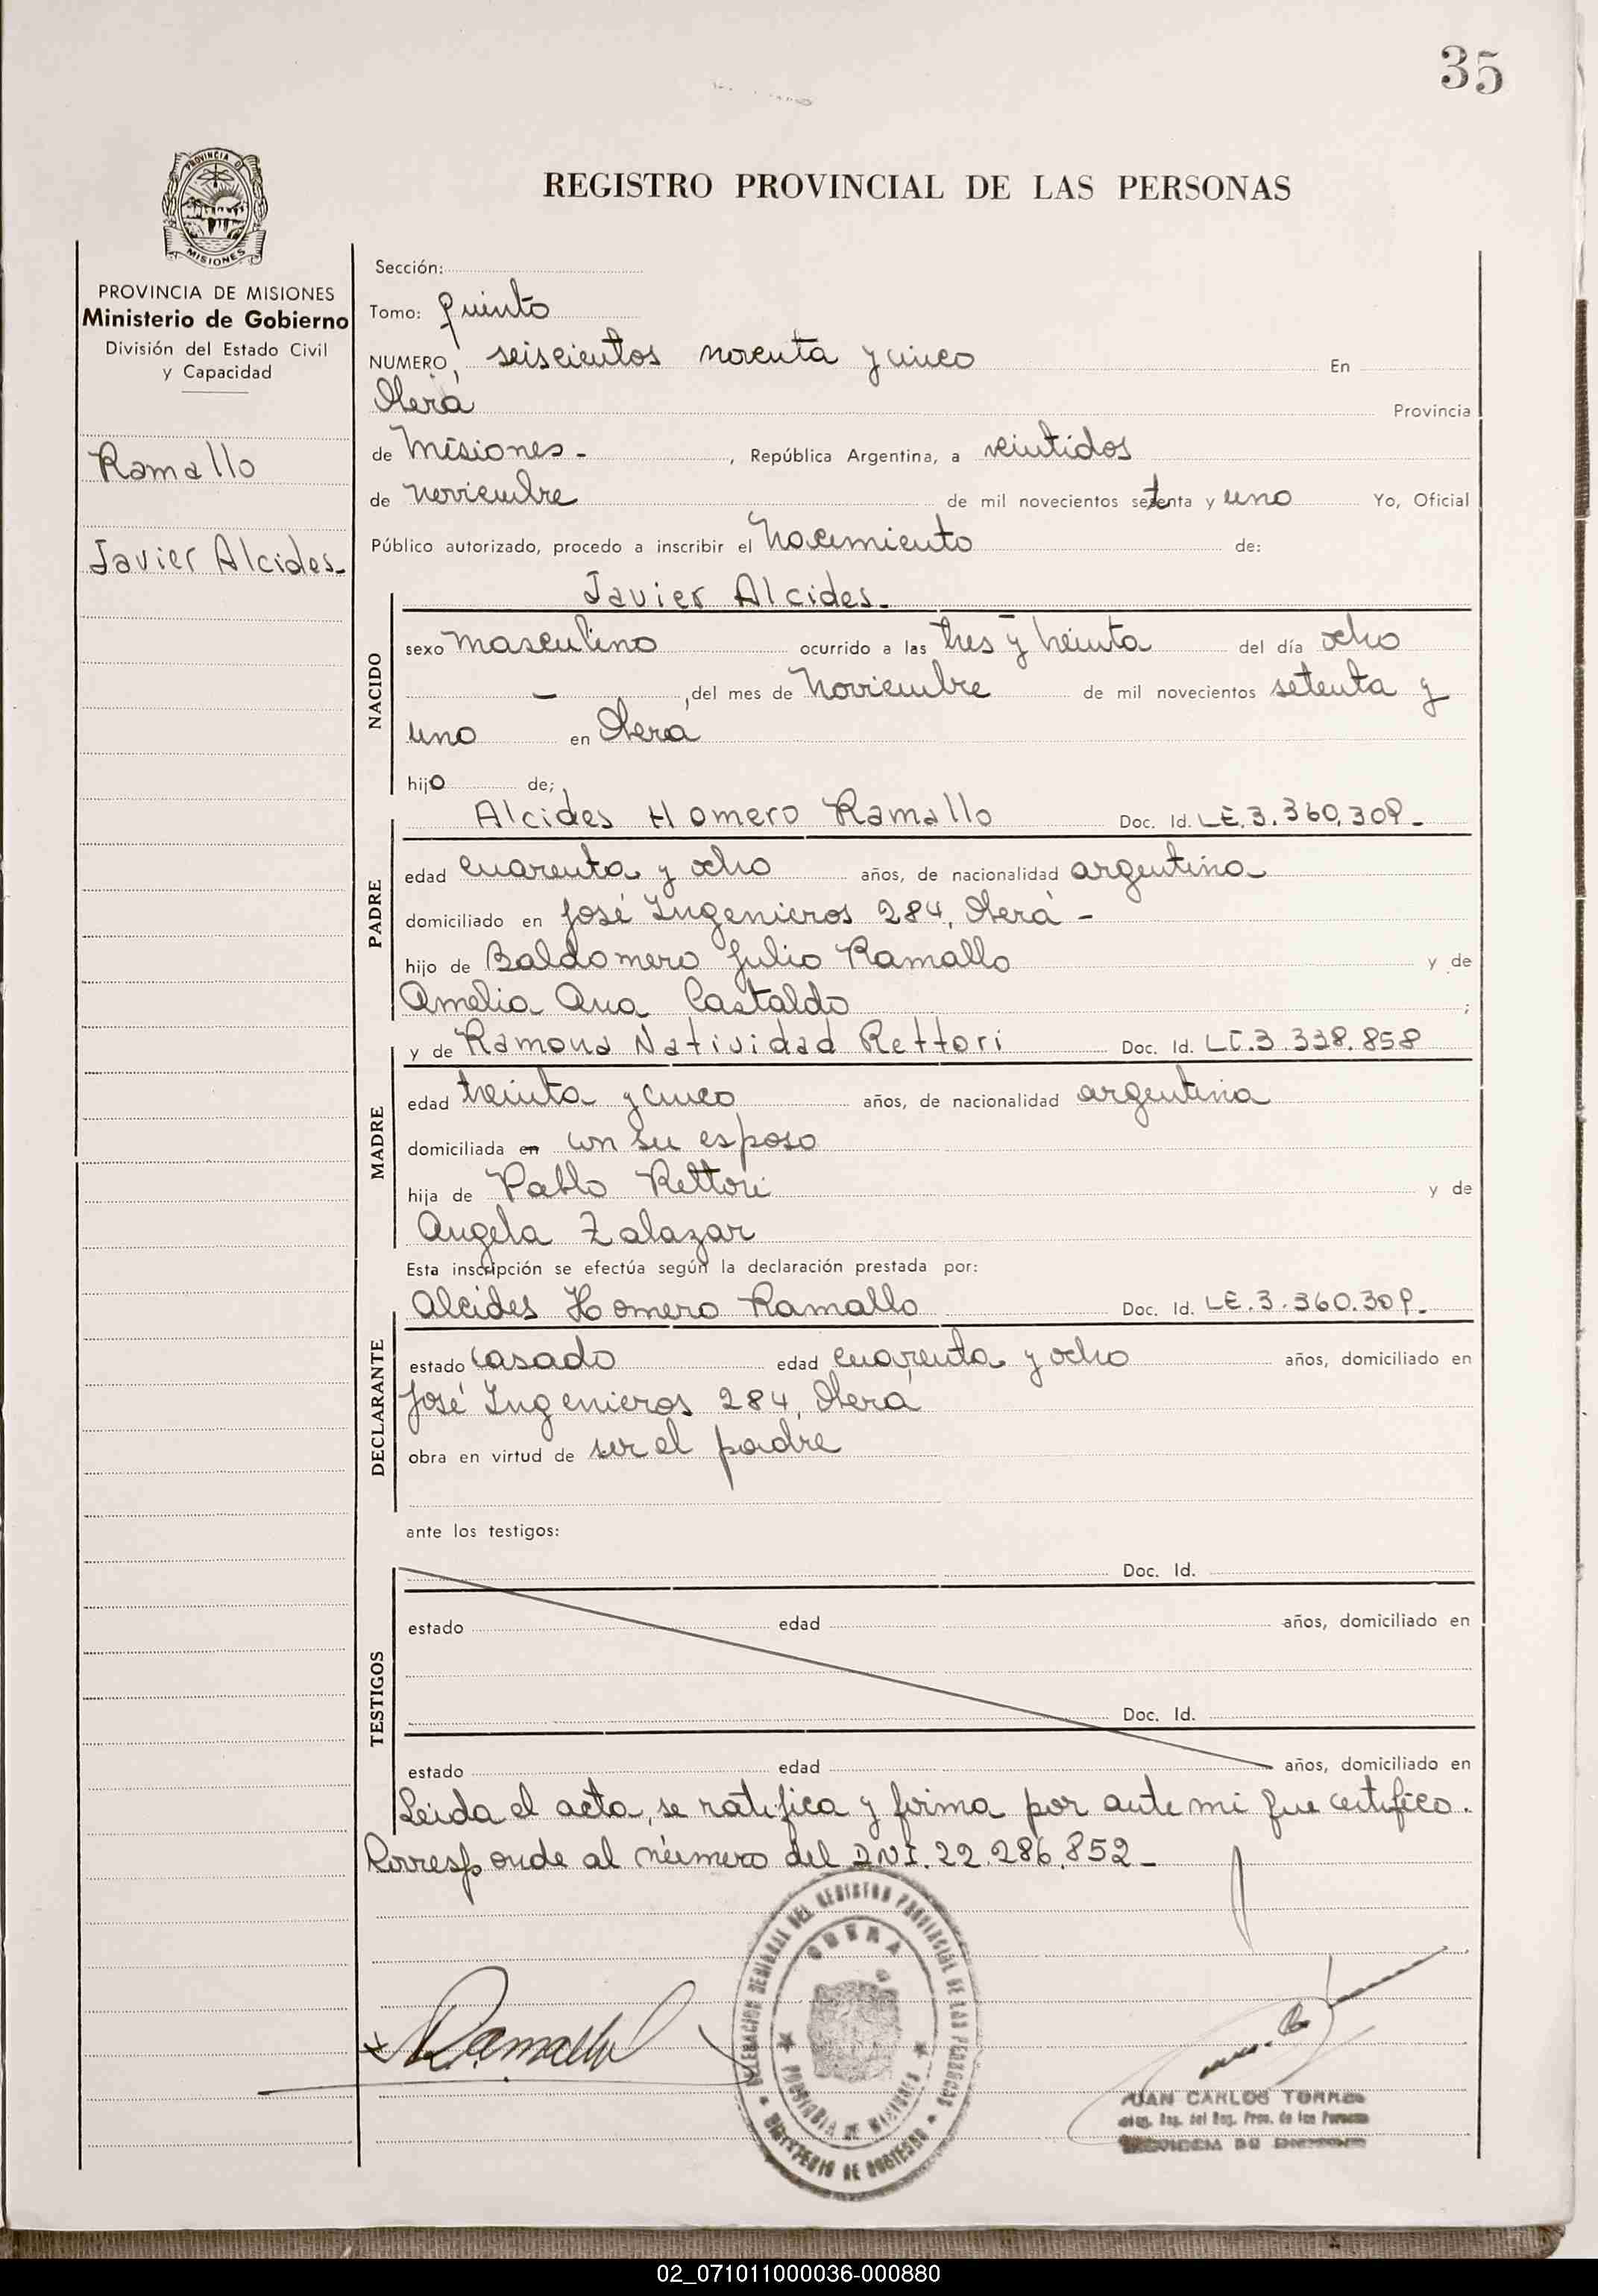 35
PROVINCIA DE
MISIONES
REGISTRO PROVINCIAL DE LAS PERSONAS
PROVINCIA DE MISIONES
Ministerio de Gobierno
División del Estado Civil
y Capacidad
Ramallo
Javier Alcides.
Sección:
Tomo: Quinto
NUMERO, seiscientos noventa y cinco En
Oberá Provincia
de Misiones - , República Argentina, a veintidos
de noviembre de mil novecientos setenta y uno Yo, Oficial
Público autorizado, procedo a inscribir el Nacimiento de:
Javier Alcides.
NACIDO
sexo masculino ocurrido a las tres y treinta del día ocho
- , del mes de Noviembre de mil novecientos setenta y
uno en Oberá
hijo de;
Alcides Homero Ramallo Doc. Id. LE.3.360.309-
PADRE
edad cuarenta y ocho años, de nacionalidad argentina
domiciliado en José Ingenieros 284, Oberá -
hijo de Baldomero Julio Ramallo y de
Amelia Ana Castaldo ;
y de Ramona Natividad Rettori Doc. Id. LC.3.338.858
MADRE
edad treinta y cinco años, de nacionalidad argentina
domiciliada en con su esposo
hija de Pablo Rettori y de
Angela Zalazar
Esta inscripción se efectúa según la declaración prestada por:
Alcides Homero Ramallo Doc. Id. LE.3.360.309-
DECLARANTE
estado casado edad cuarenta y ocho años, domiciliado en
José Ingenieros 284, Oberá
obra en virtud de ser el padre
ante los testigos:
TESTIGOS
Doc. Id.
estado edad años, domiciliado en
Doc. Id.
estado edad años, domiciliado en
Leida el acta, se ratifica y firma por ante mi que certifico.
Corresponde al número del D.N.I. 22.286.852-
Ramallo
DELEGACION REGIONAL DEL REGISTRO PROVINCIAL DE LAS PERSONAS
OBERA
PROVINCIA DE MISIONES
MINISTERIO DE GOBIERNO
JUAN CARLOS TORRES
del Reg. Prov. de las Personas
PROVINCIA DE MISIONES
02_071011000036-000880